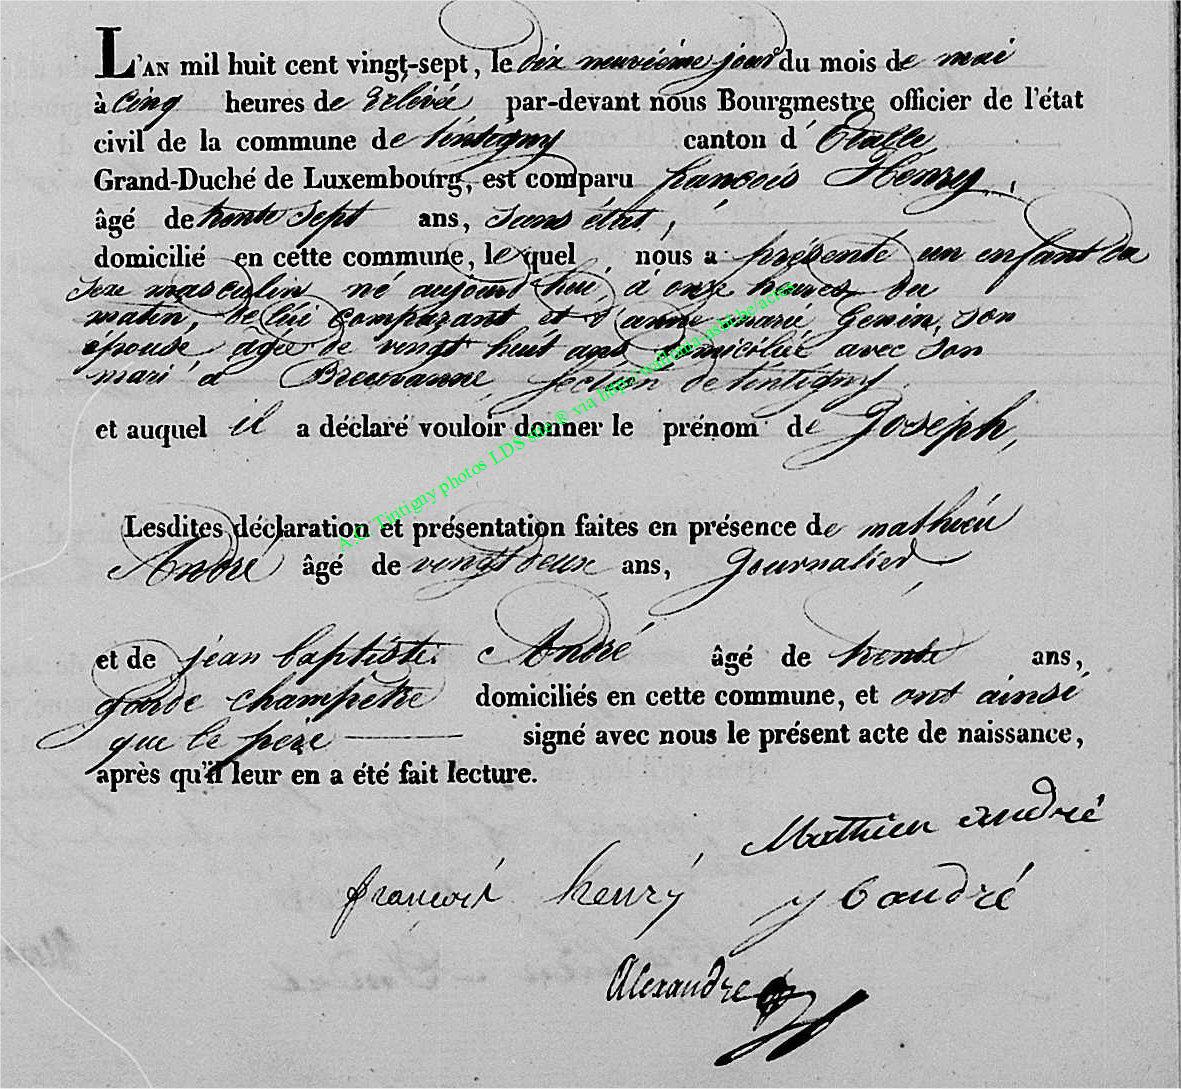 L'AN mil huit cent vingt-sept, le dix neuvième jour du mois de mai
à cinq heures de relévé par-devant nous Bourgmestre officier de l'état
civil de la commune de tintigny canton d'Etalle
Grand-Duché de Luxembourg, est comparu francois Henry,
âgé de trente sept ans, sans état,
domicilié en cette commune, le quel nous a présenté un enfant du
sexe masculin né aujourd'hui à onze heures du
matin, de lui comparant et d'anne marie Genin, son
épouse agée de vingt huit ans domiciliée avec son
mari à Breuvanne section de tintigny
et auquel il a déclaré vouloir donner le prénom de Joseph,
Lesdites déclaration et présentation faites en présence de mathieu
André âgé de vingt deux ans, Journalier
et de jean baptiste André âgé de trente ans,
garde champetre domiciliés en cette commune, et ont ainsi
que le père signé avec nous le présent acte de naissance,
après qu'il leur en a été fait lecture.
Mathieu andré
françois henry
j b andré
Alexandre
A.C. Tintigny photos LDS via